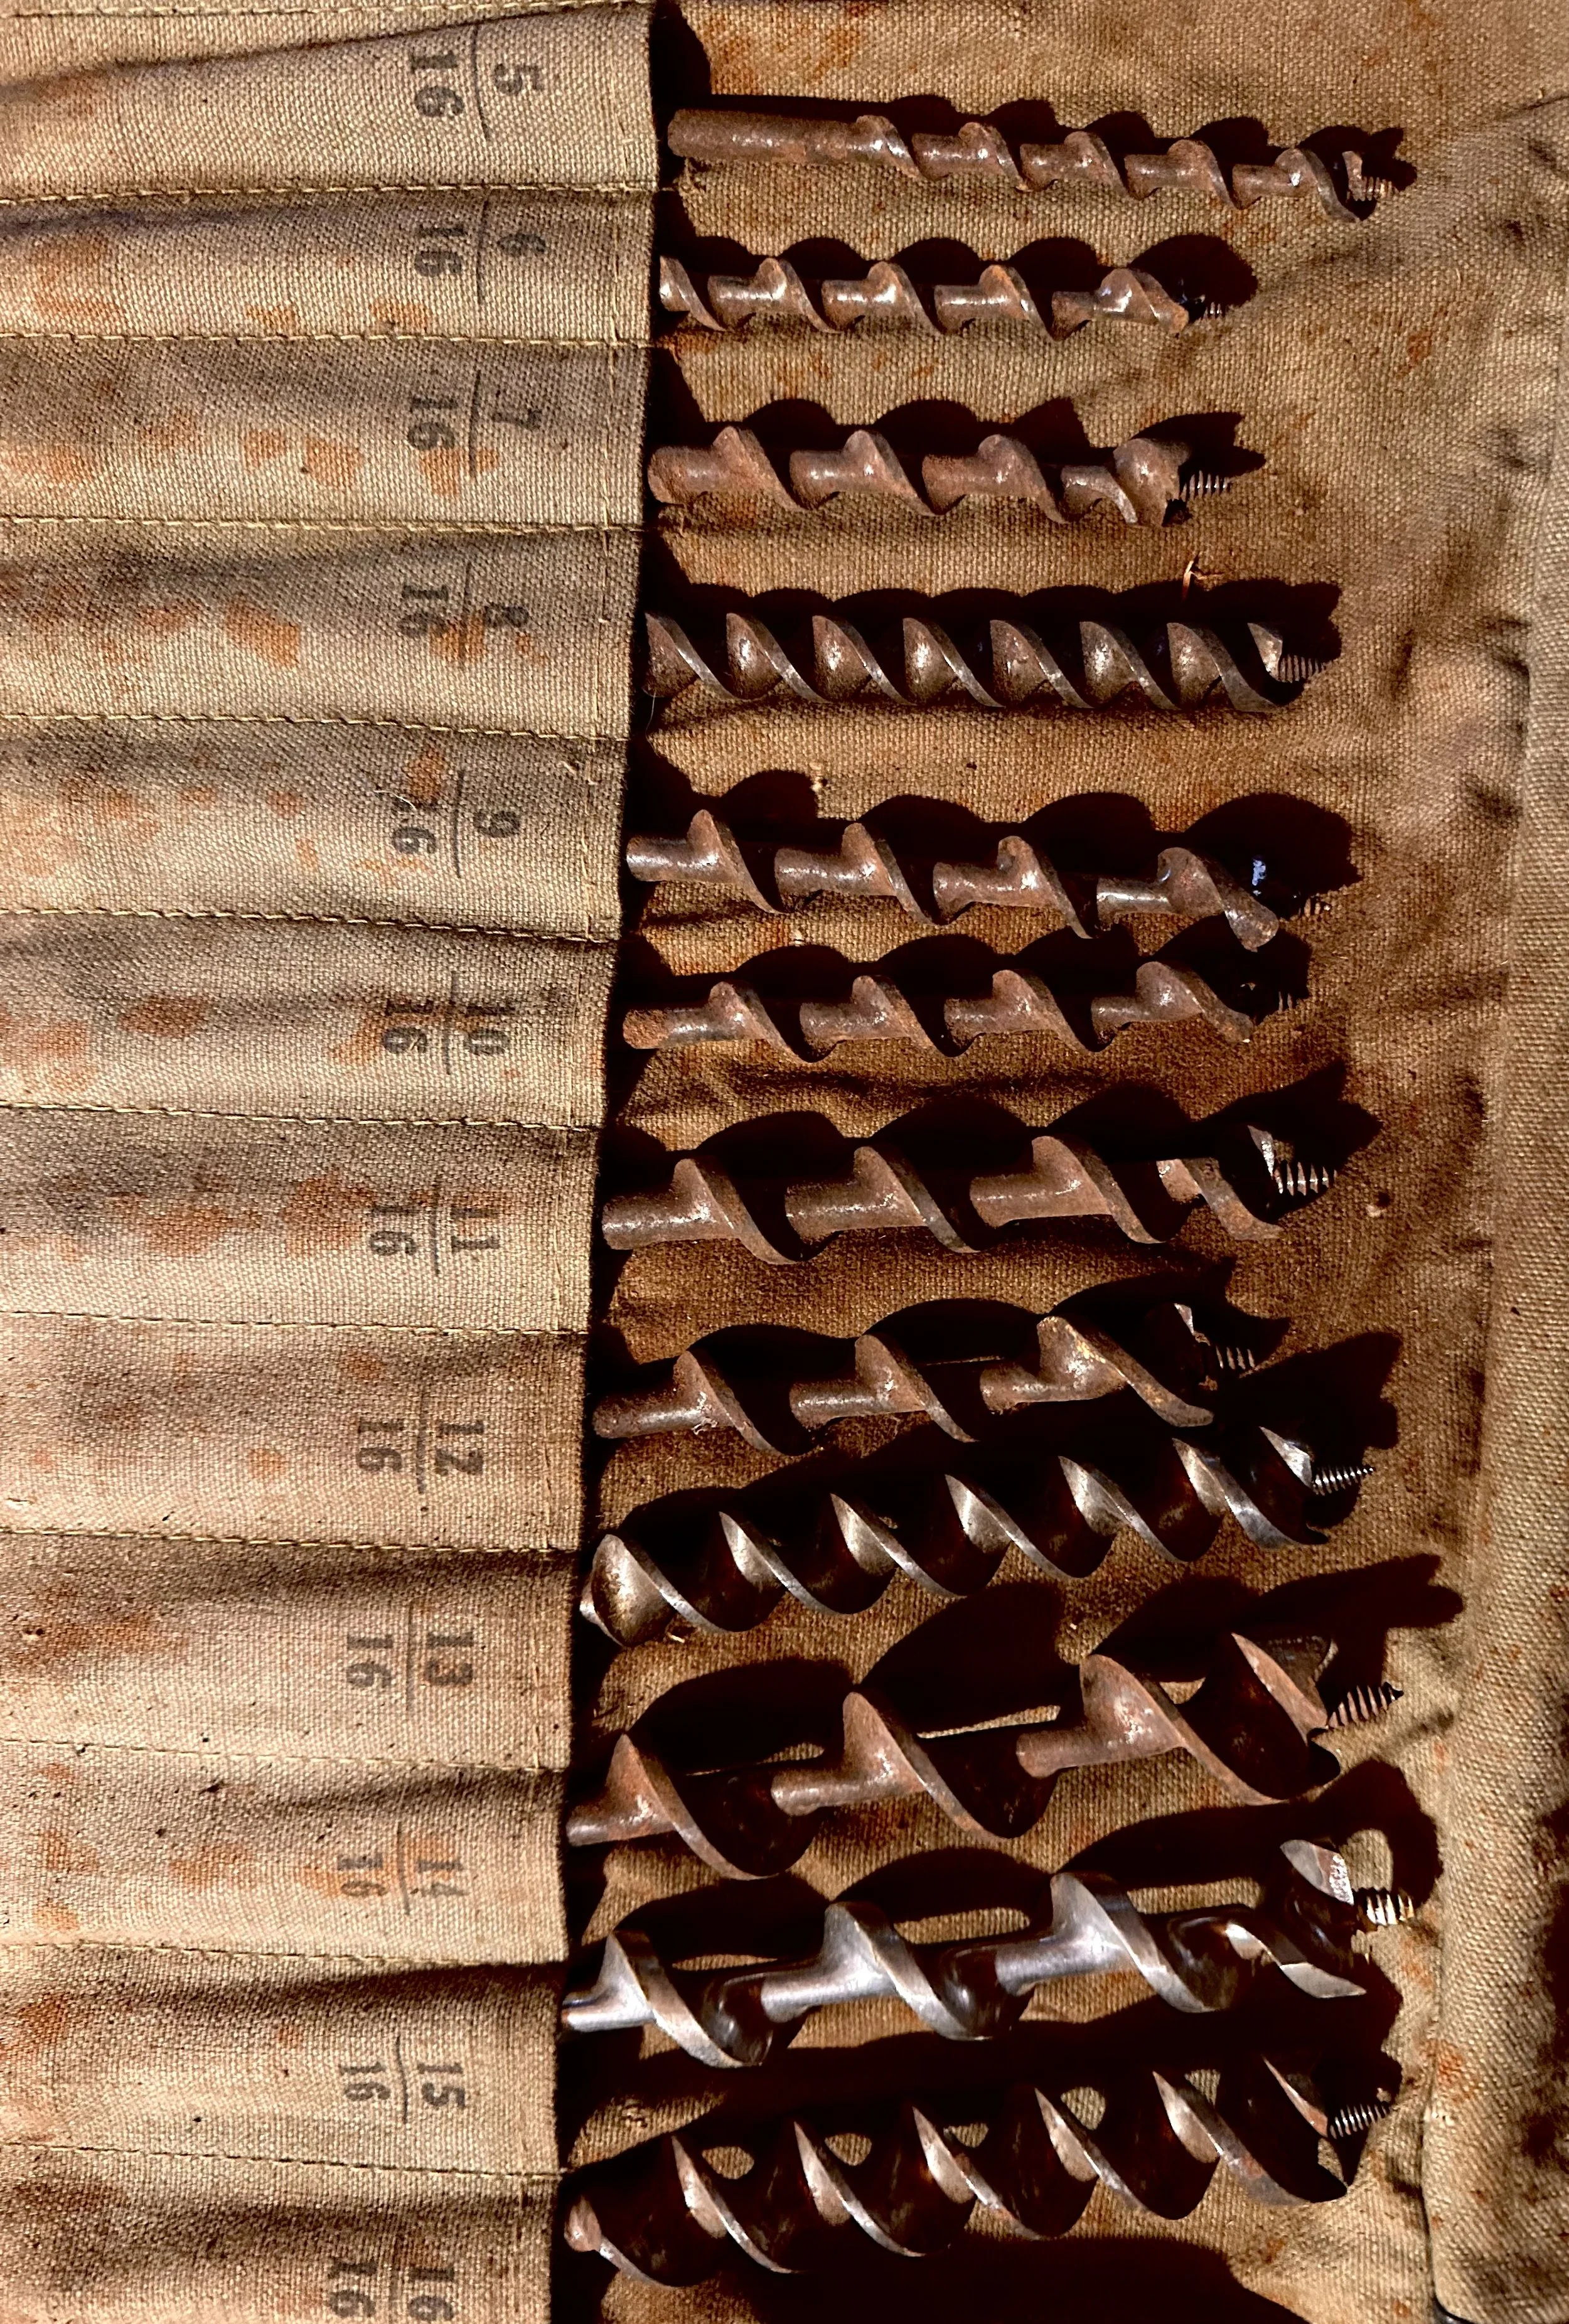 5
16
6
16
7
16
8
16
9
16
10
16
11
16
12
16
13
16
14
16
15
16
16
16